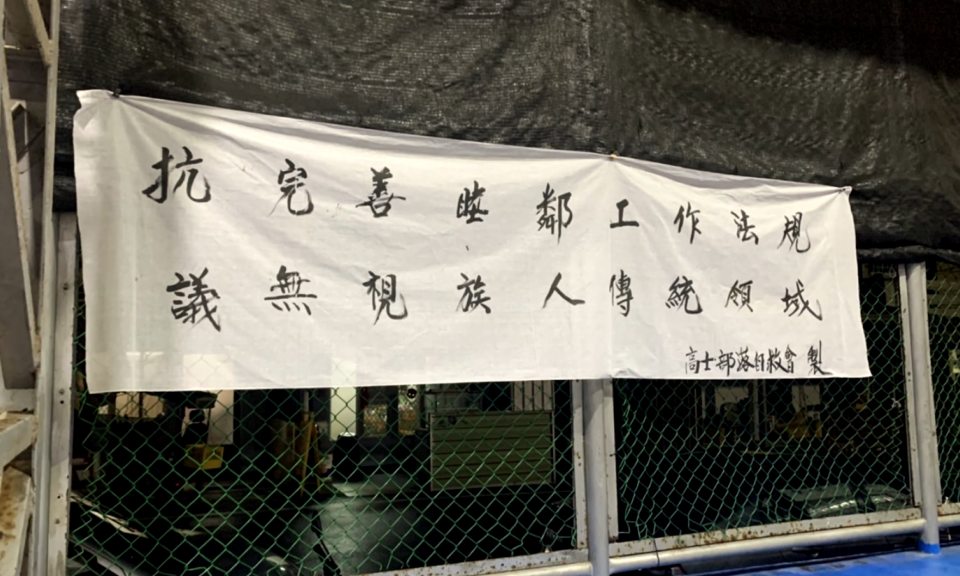 抗完善睦鄰工作法規
議無視族人傳統領域
高士部落自救會 製